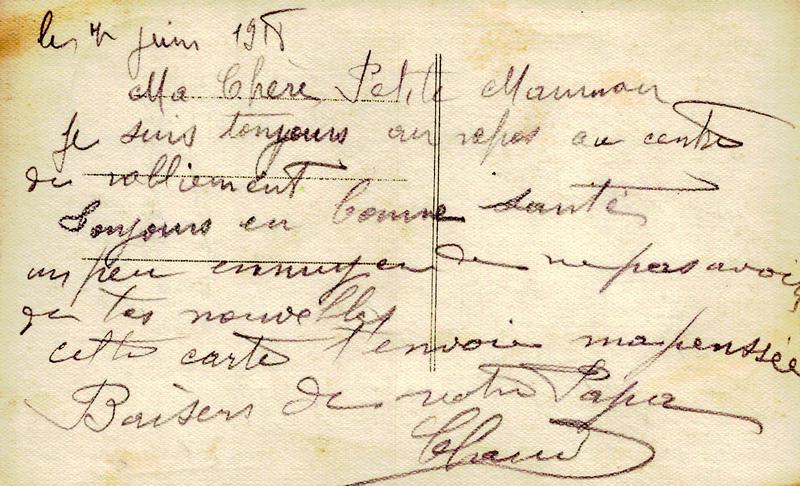 le juin 1918
Ma Chère Petite Maman
Je suis toujours au repos au centre
de ralliement
Toujours en bonne santé
un peu ennuyer de ne pas avoir
de tes nouvelles
cette carte t'envoie ma penssée
Baisers de notre Papa